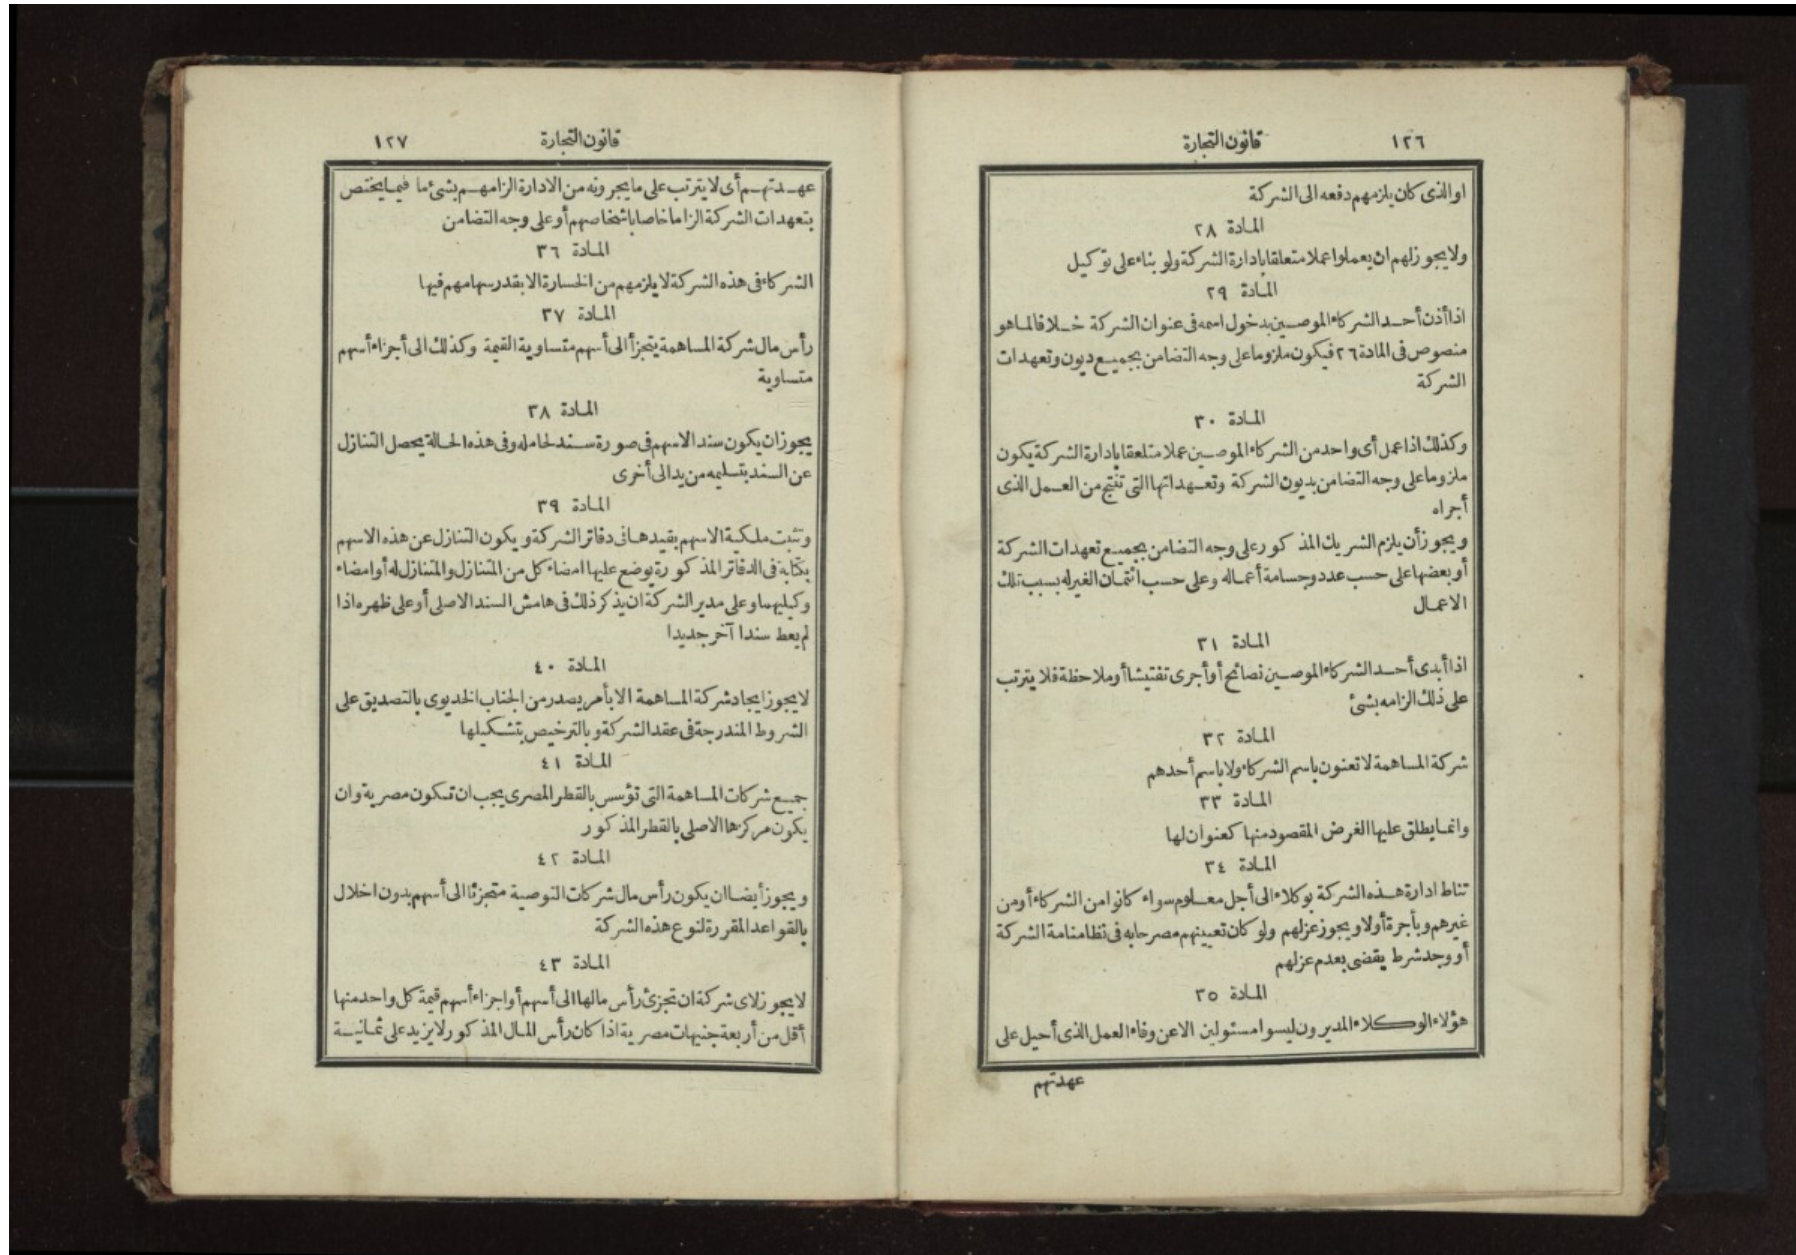 ١٢٦
قانون التجارة
او الذى كان يلزمهم دفعه الى الشركة
المادة ٢٨
ولا يجوز لهم ان يعملوا عملا متعلقا بادارة الشركة ولو بناء على توكيل
المادة ٢٩
اذا أذن أحد الشركاء الموصين بدخول اسمه فى عنوان الشركة خلافا لما هو
منصوص فى المادة ٢٦ فيكون ملزوما على وجه التضامن بجميع ديون وتعهدات
الشركة
المادة ٣٠
وكذلك اذا عمل أى واحد من الشركاء الموصين عملا متلعقا بادارة الشركة يكون
ملزوما على وجه التضامن بديون الشركة وتعهداتها التى تنتج من العمل الذى
أجراه
ويجوز أن يلزم الشريك المذكور على وجه التضامن بجميع تعهدات الشركة
أو بعضها على حسب عدد وجسامة أعماله وعلى حسب ائتمان الغير له بسبب تلك
الاعمال
المادة ٣١
اذا أبدى أحد الشركاء الموصين نصائح أو أجرى تفتيشا أو ملاحظة فلا يترتب
على ذلك الزامه بشئ
المادة ٣٢
شركة المساهمة لا تعنون باسم الشركاء ولا باسم أحدهم
المادة ٣٣
وانما يطلق عليها الغرض المقصود منها كعنوان لها
المادة ٣٤
تناط ادارة هذه الشركة بوكلاء الى أجل معلوم سواء كانوا من الشركاء أو من
غيرهم وبأجرة أولا ويجوز عزلهم ولو كان تعيينهم مصرحا به فى نظامنامة الشركة
أو وجد شرط يقضى بعدم عزلهم
المادة ٣٥
هؤلاء الوكلاء المديرون ليسوا مسئولين الا عن وفاء العمل الذى أحيل على
عهدتهم
قانون التجارة
١٢٧
عهدتهم أى لا يترتب على ما يجرونه من الادارة الزامهم بشئ ما فيما يختص
بتعهدات الشركة الزاما خاصا باشخاصهم أو على وجه التضامن
المادة ٣٦
الشركاء فى هذه الشركة لا يلزمهم من الخسارة الا بقدر سهامهم فيها
المادة ٣٧
رأس مال شركة المساهمة يتجزأ الى أسهم متساوية القيمة وكذلك الى أجزاء أسهم
متساوية
المادة ٣٨
يجوز ان يكون سند الاسهم فى صورة سند لحامله وفى هذه الحالة يحصل التنازل
عن السند بتسليمه من يد الى أخرى
المادة ٣٩
وتثبت ملكية الاسهم بقيدها فى دفاتر الشركة ويكون التنازل عن هذه الاسهم
بكتابة فى الدفاتر المذكورة يوضع عليها امضاء كل من المتنازل والمتنازل له أو امضاء
وكيليهما وعلى مدير الشركة ان يذكر ذلك فى هامش السند الاصلى أو على ظهره اذا
لم يعط سندا آخر جديدا
المادة ٤٠
لا يجوز ايجاد شركة المساهمة الا بأمر يصدر من الجناب الخديوى بالتصديق على
الشروط المندرجة فى عقد الشركة وبالترخيص بتشكيلها
المادة ٤١
جميع شركات المساهمة التى تؤسس بالقطر المصرى يجب ان تكون مصرية وان
يكون مركزها الاصلى بالقطر المذكور
المادة ٤٢
ويجوز أيضا ان يكون رأس مال شركات التوصية متجزئا الى أسهم بدون اخلال
بالقواعد المقررة لنوع هذه الشركة
المادة ٤٣
لا يجوز لاى شركة ان تجزئ رأس مالها الى أسهم أو اجزاء أسهم قيمة كل واحد منها
أقل من أربعة جنيهات مصرية اذا كان رأس المال المذكور لا يزيد على ثمانية